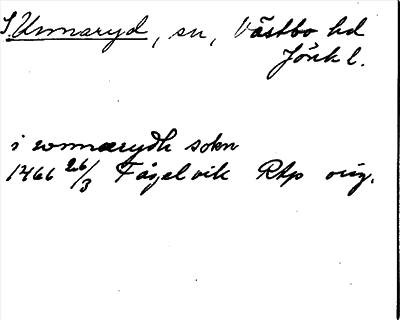 S. Unnaryd, sn, Västbo hd
Jönk l.
i wnnarydh sokn
1466 26/3 Fågelvik Rkp orig.